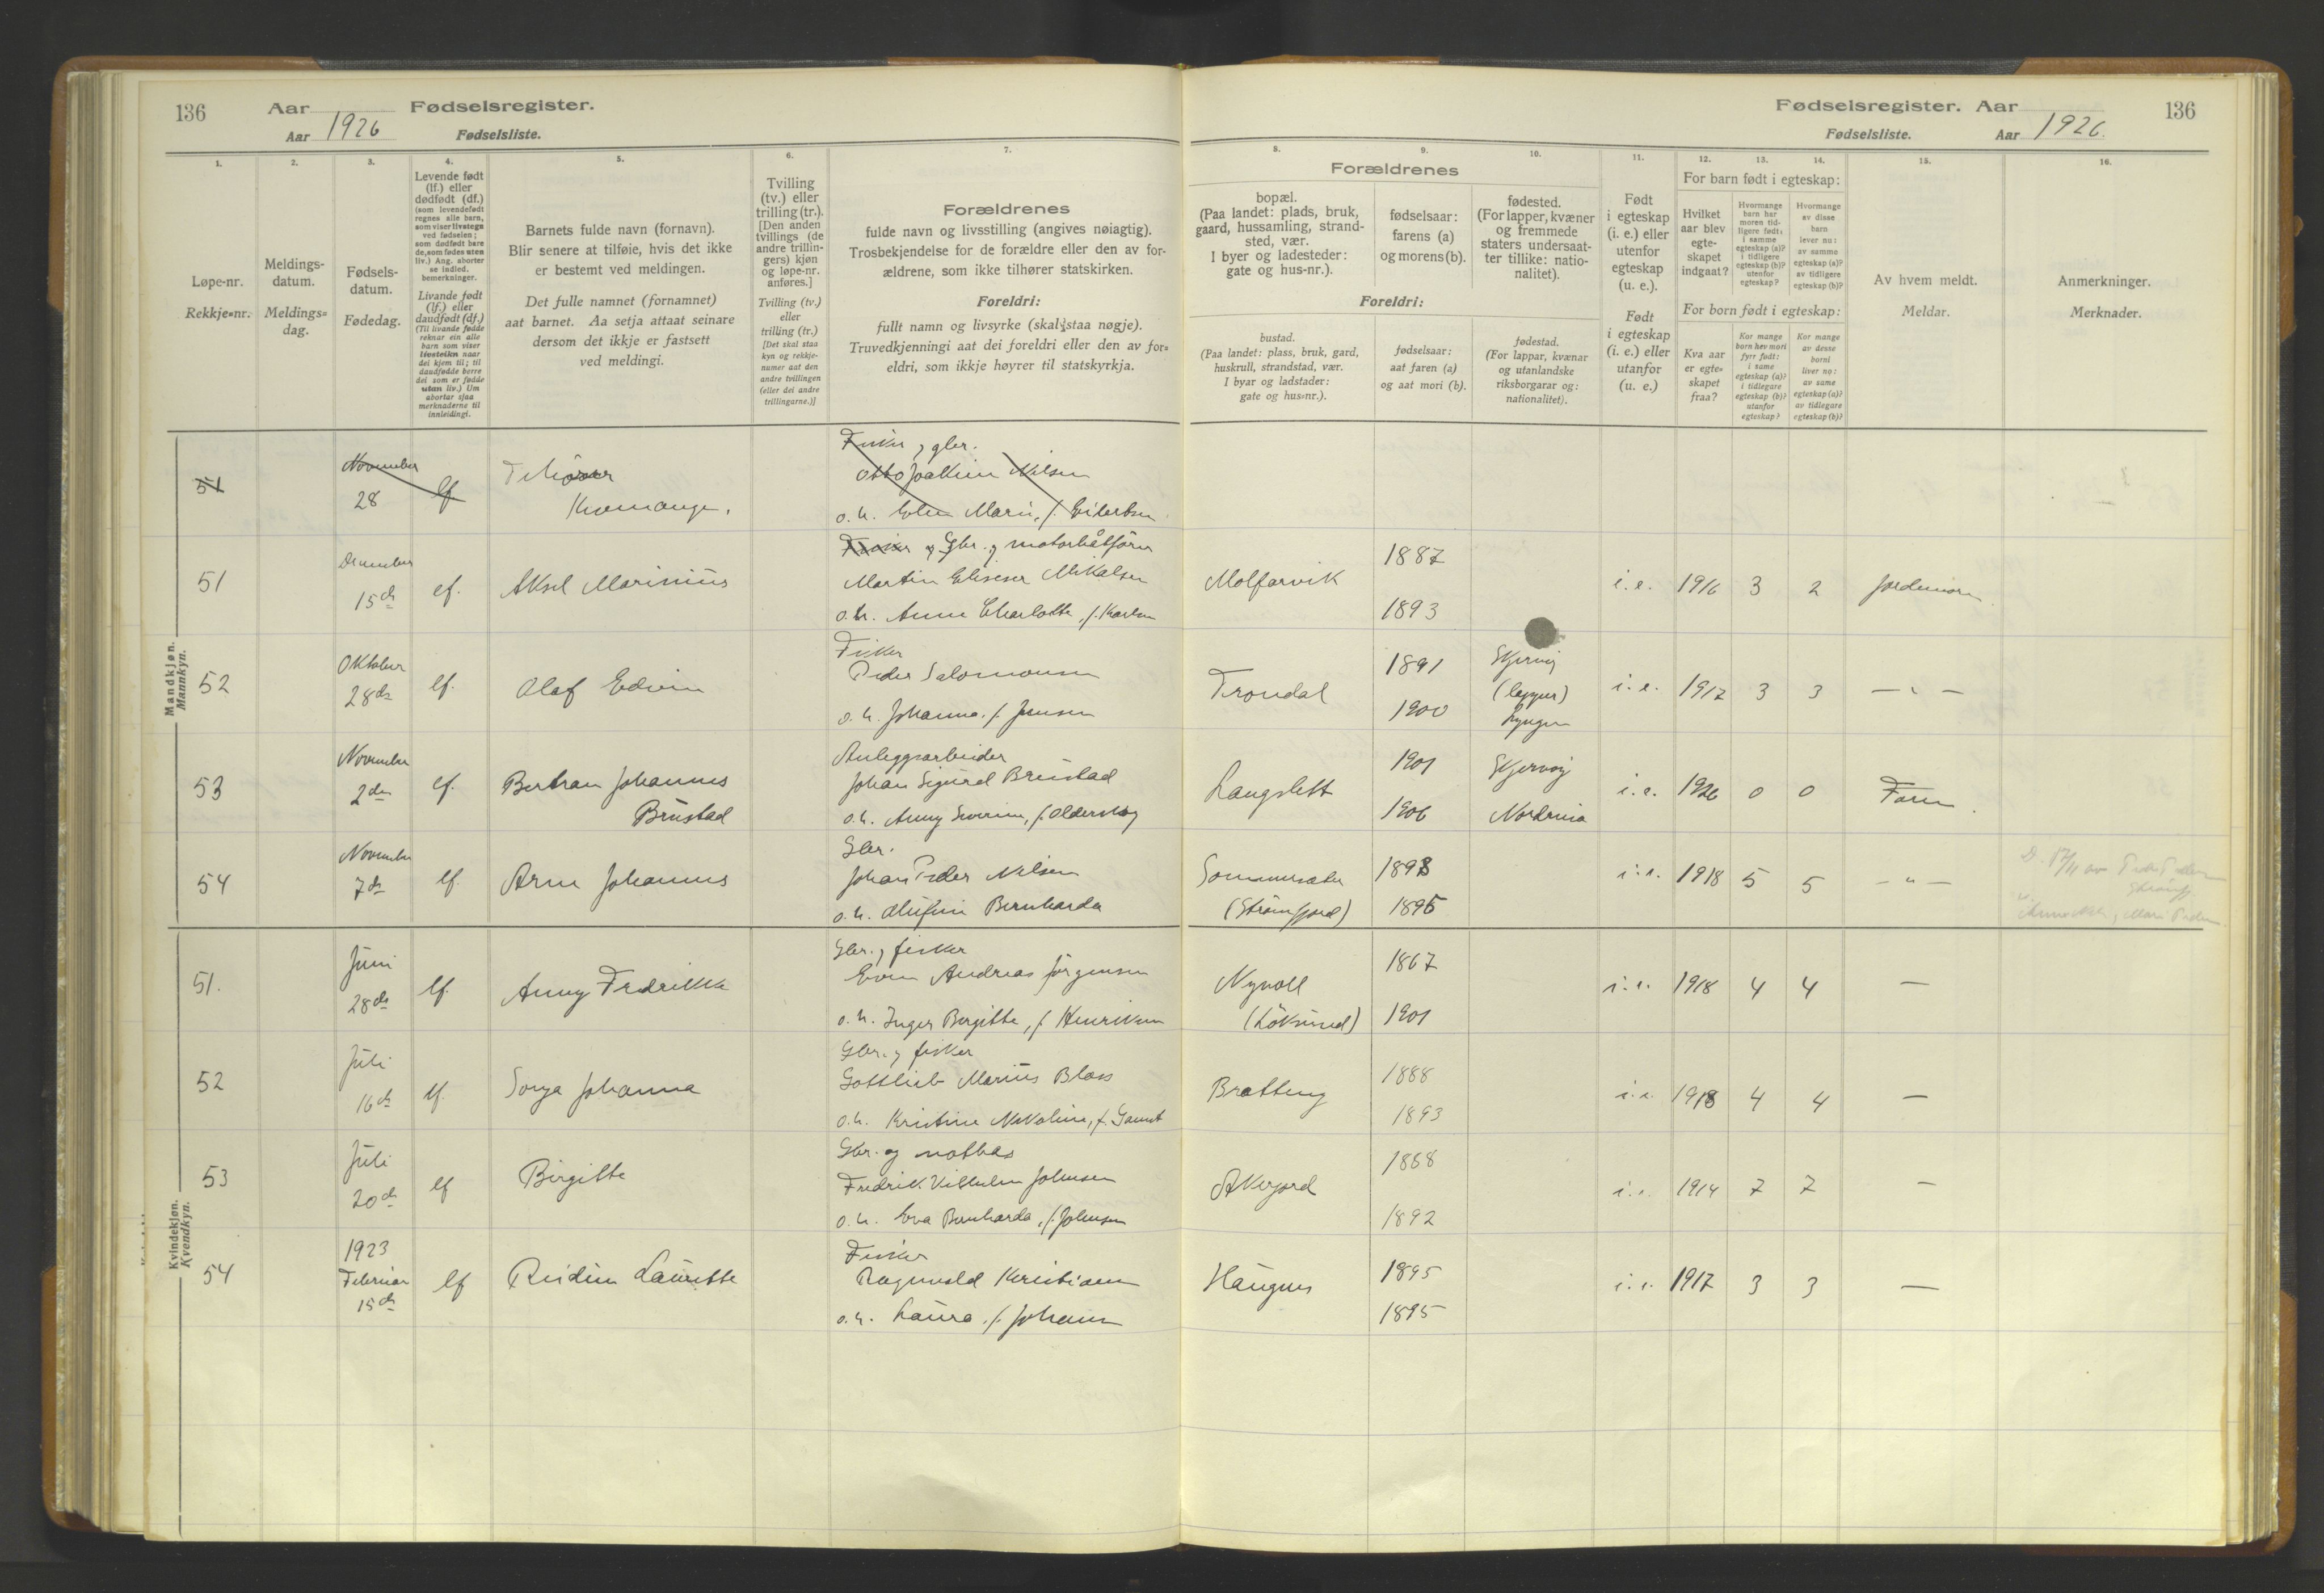 136 Aar Fødselsregister.
Aar 1926 Fødselsliste.
Fødselsregister. Aar 136
Fødselsliste. Aar 1926.
1. 2. 3. 4. 5. 6. 7.
Løpe-nr.
Rekkje=nr.
Meldings-
datum.
Meldings=
dag.
Fødsels-
datum.
Fødedag.
Levende født
(lf.) eller
dødfødt (df.)
(som levendefødt
regnes alle barn,
som viser livstegn
ved fødselen;
som dødfødt bare
de, som fødes uten
liv.) Ang. aborter
se indled.
bemerkninger.
Livande født
(lf.) eller
daudfødt (df.)
(Til livande fødde
reknar ein alle
barn som viser
livsteikn naar
dei kjem til; til
daudfødde berre
dei som er fødde
utan liv.) Um
abortar sjaa
merknaderne til
innleidingi.
Barnets fulde navn (fornavn).
Blir senere at tilføie, hvis det ikke
er bestemt ved meldingen.
Det fulle namnet (fornamnet)
aat barnet. Aa setja attaat seinare
dersom det ikkje er fastsett
ved meldingi.
Tvilling
(tv.) eller
trilling (tr.).
[Den anden
tvillings (de
andre trillin-
gers) kjøn
og løpe-nr.
anføres.]
Tvilling (tv.)
eller
trilling (tr.)
[Det skal staa
kyn og rekkje-
numer aat den
andre tvillingen
(eller dei andre
trillingarne.)]
Forældrenes
fulde navn og livsstilling (angives nøiagtig).
Trosbekjendelse for de forældre eller den av for-
ældrene, som ikke tilhører statskirken.
Foreldri:
fullt namn og livsyrke (skal staa nøgje).
Truvedkjenningi aat dei foreldri eller den av for=
eldri, som ikkje høyrer til statskyrkja.
8. 9. 10. 11. 12. 13. 14. 15. 16.
Forældrenes
bopæl.
(Paa landet: plads, bruk,
gaard, hussamling, strand-
sted, vær.
I byer og ladesteder:
gate og hus-nr.).
fødselsaar:
farens (a)
og morens (b).
fødested.
(For lapper, kvæner
og fremmede
staters undersaat-
ter tillike: natio-
nalitet).
Foreldri:
bustad.
(Paa landet: plass, bruk, gard,
huskrull, strandstad, vær.
I byar og ladstader:
gate og hus=nr.).
fødselsaar:
aat faren (a)
og aat mori (b).
fødestad.
(For lappar, kvænar
og utanlandske
riksborgarar og:
nationalitet).
Født
i egteskap
(i. e.) eller
utenfor
egteskap
(u. e.).
Født
i egteskap
(i. e.) eller
utanfor
(u. e.)
For barn født i egteskap:
Hvilket
aar blev
egte-
skapet
indgaat?
Hvormange
barn har
moren tid-
ligere født:
i samme
egteskap (a)?
i tidligere
egteskap (b)?
utenfor
egteskap?
Hvormange
av disse
barn
lever nu:
av samme
egteskap (a)?
av tidligere
egteskap (b)?
For born født i egteskap:
Kva aar
er egte=
skapet
fraa?
Kor mange
born hev mori
fyrr født:
i same
egteskap (a)?
i tidlegare
egteskap (b)?
utanfor
egteskap?
Kor mange
av desse
borni
liver no:
av same
egteskap (a)?
av tidlegare
egteskap (b)?
Av hvem meldt.
Meldar.
Anmerkninger.
Merknader.
Mandkjøn.
Mannkyn.
51 November 28 lf
Kvenangen.
Fisker og gbr.
Otto Joakim Nilsen
o.h. Elen Marie, f. Eilertsen
51 December 15de lf. Aksel Marinius
Fisker og Gbr. og motorbåtfører
Martin Eliseser Mikalsen
o.h. Anna Charlotte, f. Karlsen
Molfarvik 1887 1893 i.e. 1916 3 2 Jordmoren
52 Oktober 28de lf. Olaf Edvin
Fisker
Peder Salomonsen
o.h. Johanna, f. Jensen
Trondal 1891 1900
Skjervøy
(lapper)
Lyngen
i.e. 1917 3 3 — " —
53 November 2den lf. Bertran Johannes
Brustad
Anleggsarbeider
Johan Sigurd Brustad
o.h. Anny Severine, f. Olderskog
Langslett 1901 1906
Skjervøy
Nordreisa
i.e. 1926 0 0 Faren.
54 November 7de lf. Arne Johannes
Gbr.
Johan Peder Nilsen
o.h. Olufine Bernharda
Sommersæter
(Strømfjord)
1893 1895 i.e. 1918 5 5 — " —
Kvindekjøn.
Kvendkyn.
51. Juni 28de lf. Anny Fredrikke
Gbr. og fisker
Even Andreas Jørgensen
o.h. Inger Birgitte, f. Henriksen
Nyvoll
(Løksund)
1867 1901 i.e. 1918 4 4 —
52 Juli 16de lf. Sonja Johanna
Gbr. og fisker
Gottlieb Marius Bloss
o.h. Kristine Nikoline, f. Gamst
Bratteng 1888 1893 i.e. 1918 4 4 —
53 Juli 20de lf Birgitte
Gbr. og notbas
Fredrik Vilhelm Johnsen
o.h. Eva Bernharda, f. Johnsen
Akerjord 1888 1892 i.e. 1914 7 7 —
54 1923 Februar 15de lf Reidun Lauritte
Fisker
Ragnvald Kristiansen
o.h. Laura, f. Johansen
Haugnes 1895 1895 i.e. 1917 3 3 —